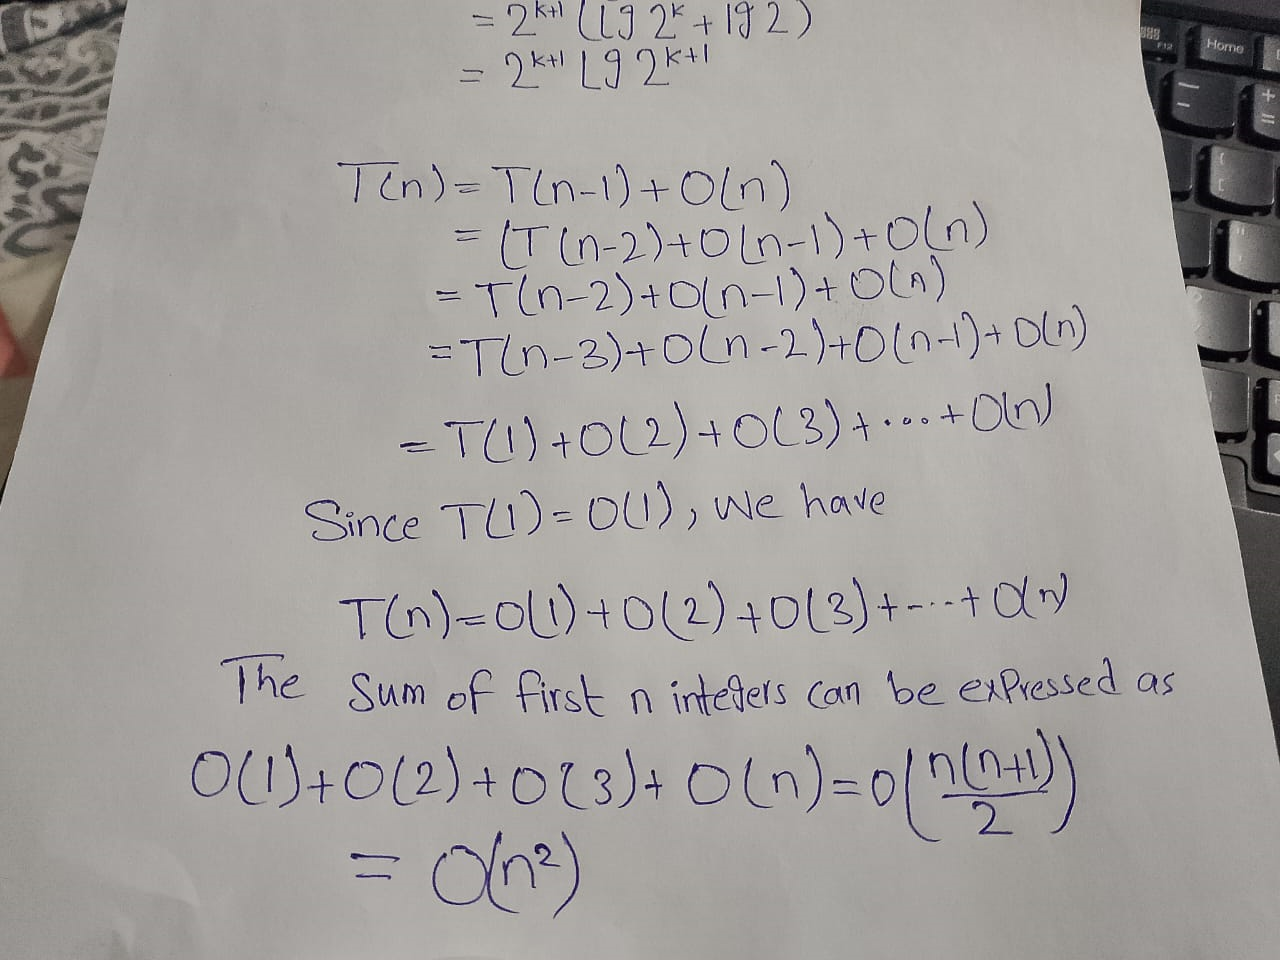 = 2^{k+1} (lg 2^k + lg 2)
= 2^{k+1} Lg 2^{k+1}
T(n) = T(n-1) + O(n)
= (T(n-2) + O(n-1) + O(n)
= T(n-2) + O(n-1) + O(n)
= T(n-3) + O(n-2) + O(n-1) + O(n)
= T(1) + O(2) + O(3) + .... + O(n)
Since T(1) = O(1), we have
T(n) = O(1) + O(2) + O(3) + .... + O(n)
The sum of first n integers can be expressed as
O(1) + O(2) + O(3) + O(n) = O(n(n+1)/2)
= O(n²)
F12
Home
+
=
{
[